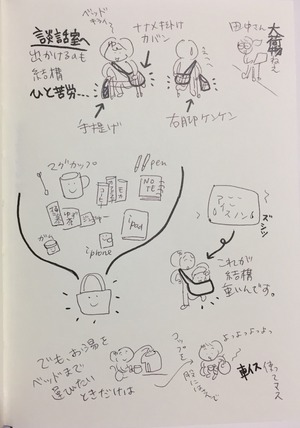 談話室へ
出かけるのも
結構
ひと苦労…
ベッド
ナナメ掛け
カバン
手提げ
右脚ケンケン
田中さん
大荷物
ねえ
マグカップ
pen
NOTE
iPad
iphone
ズシン
アイスノン
これが
結構
重いんです。
でも、お湯を
ベッドまで
運びたい
ときだけは
コップを
股にはさんで
よっよっよっよっ
車イス使ってマス